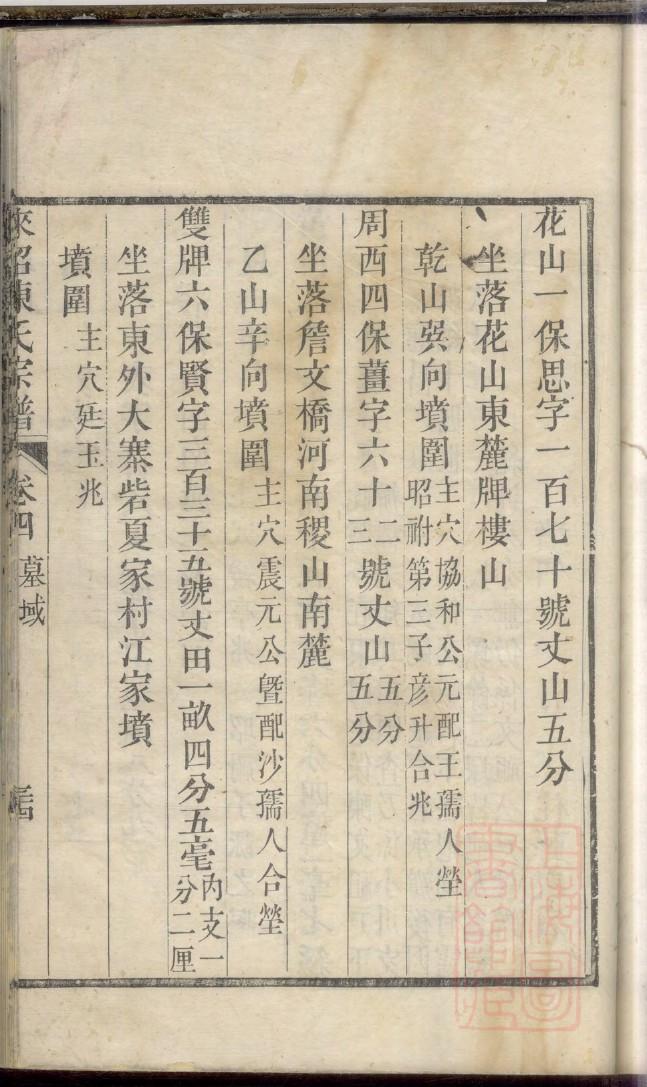 花山一保思字一百七十號丈山五分
坐落花山東麓牌樓山
乾山巽向墳圍 主穴協和公元配王孺人塋
昭祔第三子彥升合兆
周西四保薑字六十二三號丈山五分五分
坐落詹文橋河南稷山南麓
乙山辛向墳圍 主穴震元公曁配沙孺人合塋
雙牌六保賢字三百三十五號丈田一畝四分五毫 內支一分二厘
坐落東外大寨砦夏家村江家墳
墳圍 主穴廷玉兆
陳氏宗譜 卷四 墓域
上海圖書館藏